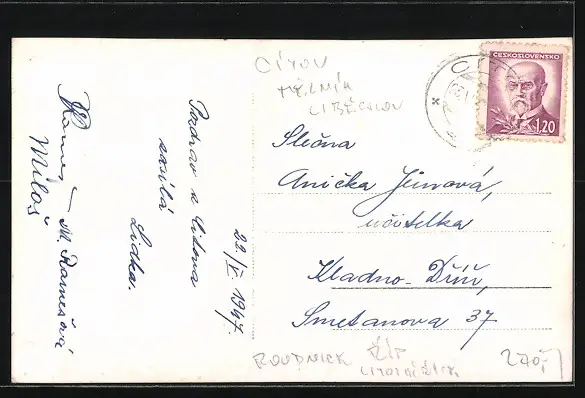 CÍTOV
MĚLNÍK
LIBĚCHOV
ČESKOSLOVENSKO
1.20
Pozdrav z Citova
zasílá
Lidka.
22/V 1947.
M. Ramešová
Miloš
Slečna
Anička Jůnová,
učitelka
Kladno-Dříň,
Smetanova 37
ROUDNICE
ŘÍP
270,-